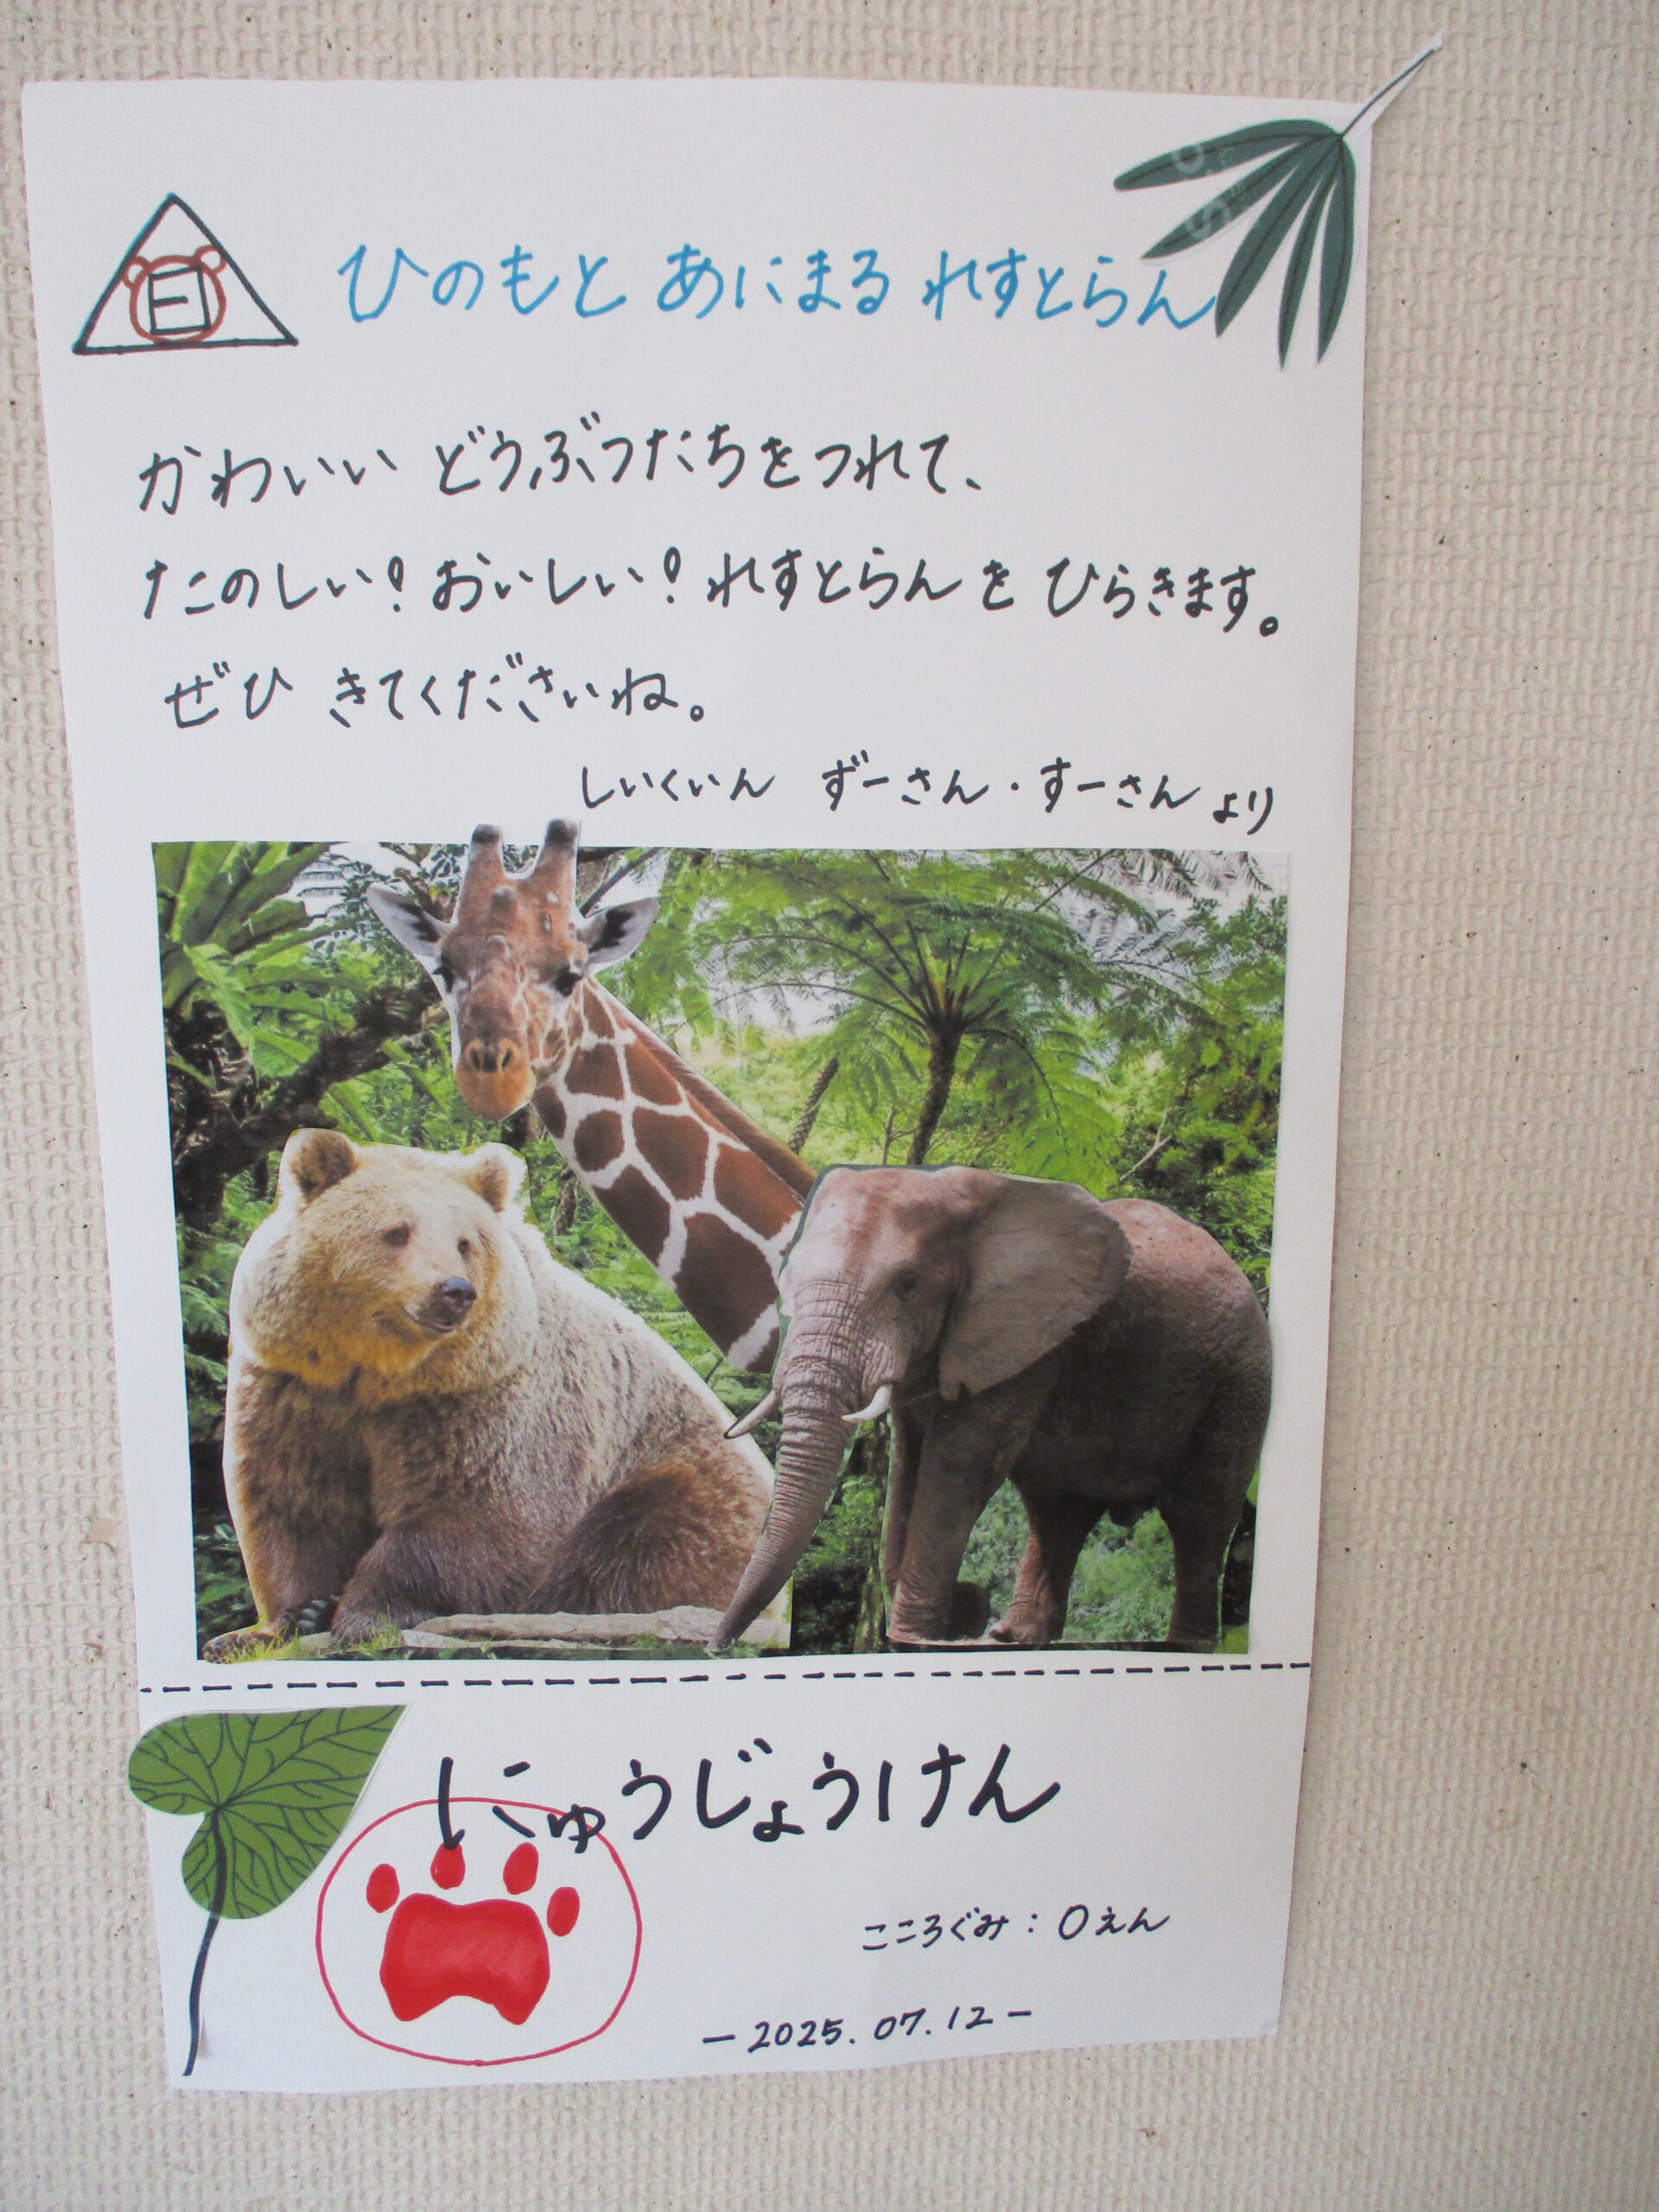 日
ひのもと あにまる れすとらん
かわいい どうぶつたちをつれて、
たのしい!おいしい!れすとらんを ひらきます。
ぜひ きてくださいね。
しいくいん ずーさん・すーさん より
にゅうじょうけん
こころぐみ:0えん
-2025.07.12-